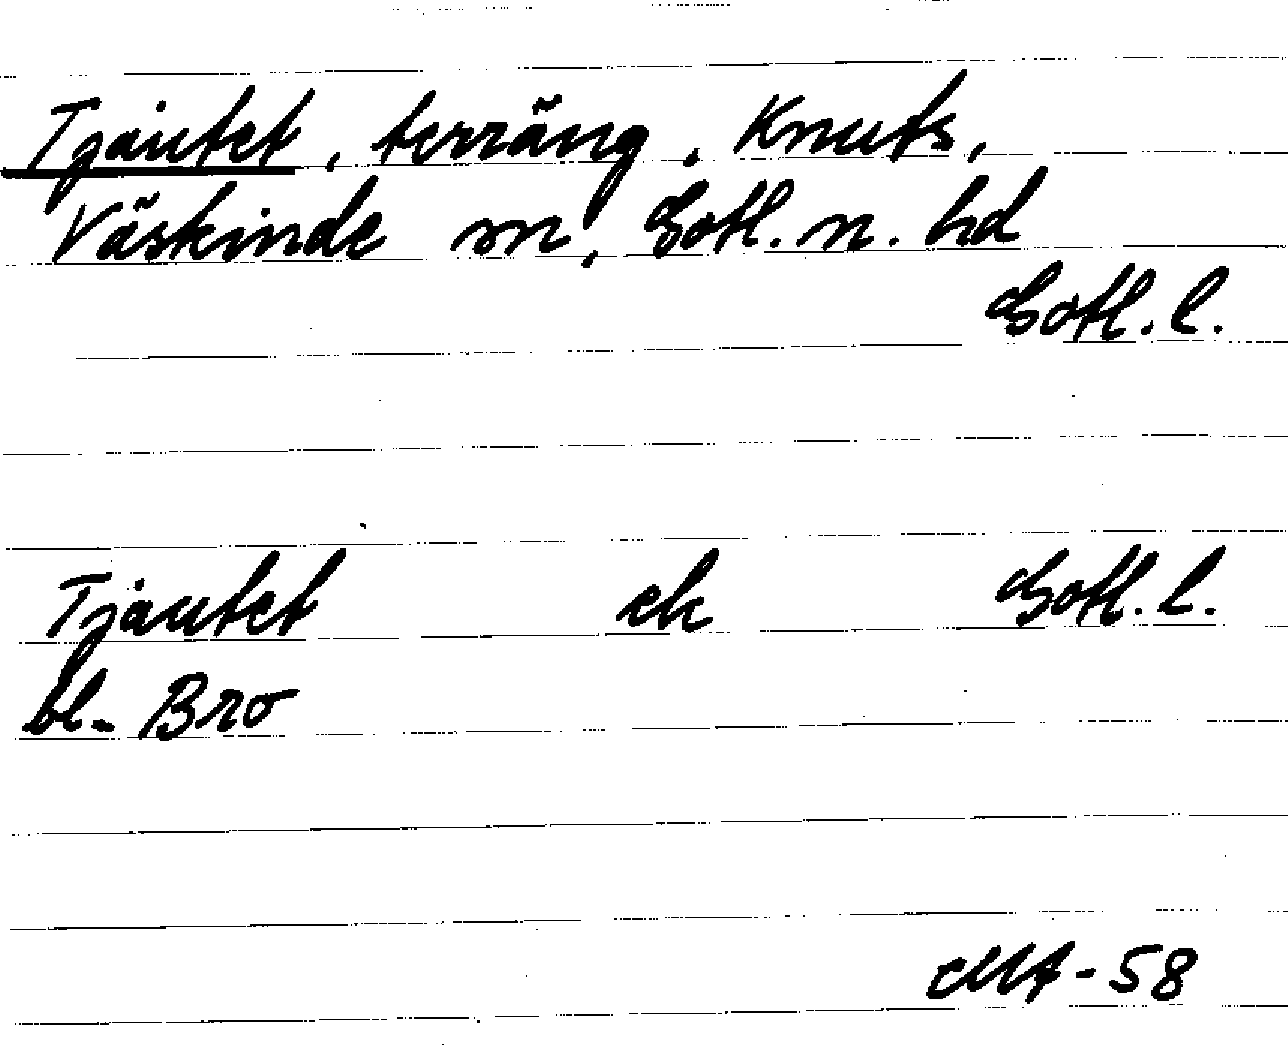 Tjautet, terräng, Knuts,
Väskinde sn, Gotl. n. hd
Gotl. l.
Tjautet ek Gotl. l.
bl. Bro
MA-58